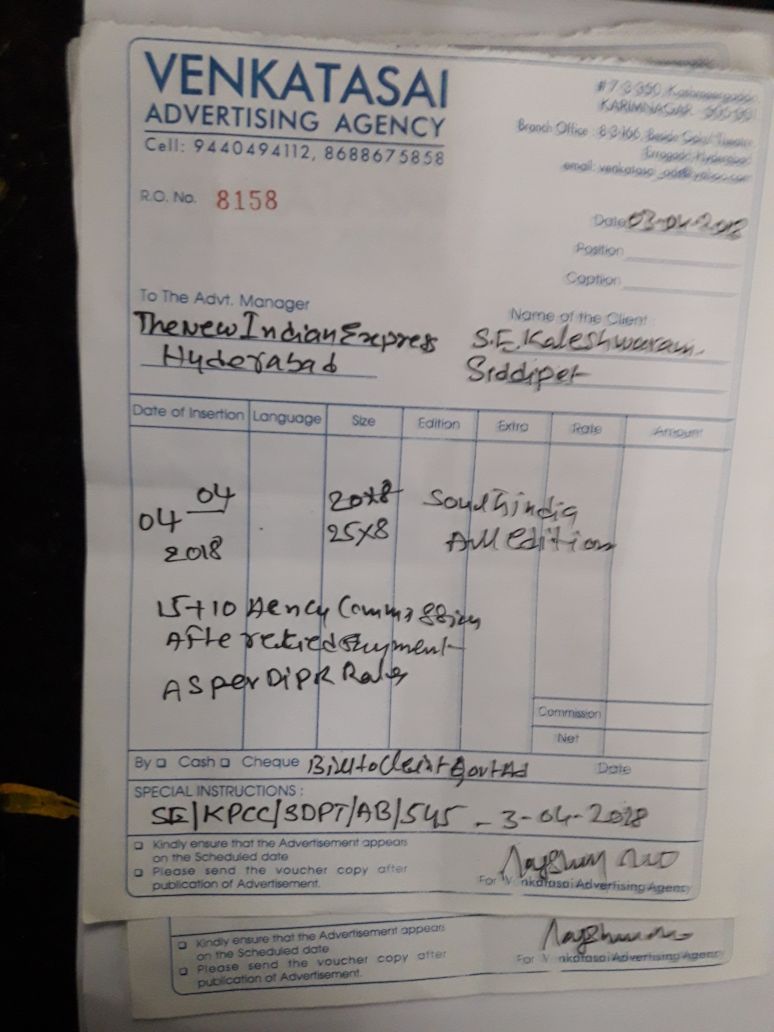 VENKATASAI
ADVERTISING AGENCY
Cell: 9440494112, 8688675858
KARIMNAGAR
Branch Office : 8-3-166, Beside
Hyderabad
email:
R.O. No. 8158
Date 03-04-2018
Position
Caption
To The Advt. Manager
The New Indian Express
Hyderabad
Name of the Client :
S.E. Kaleshwaram
Siddipet
Date of Insertion Language Size Edition Extra Rate Amount
04 04 2018
20x8 South india
25x8 All edition
15+10 Agency
After
As per DIPR Rates
Commission
Net
By Cash Cheque Bill to Govt Ad Date
SPECIAL INSTRUCTIONS :
SE/KPCC/3DPT/AB/545 - 3-04-2018
Kindly ensure that the Advertisement appears
on the Scheduled date
Please send the voucher copy after
publication of Advertisement.
For Venkatasai Advertising Agency
Kindly ensure that the Advertisement appears
on the Scheduled date
Please send the voucher copy after
publication of Advertisement.
For Venkatasai Advertising Agency